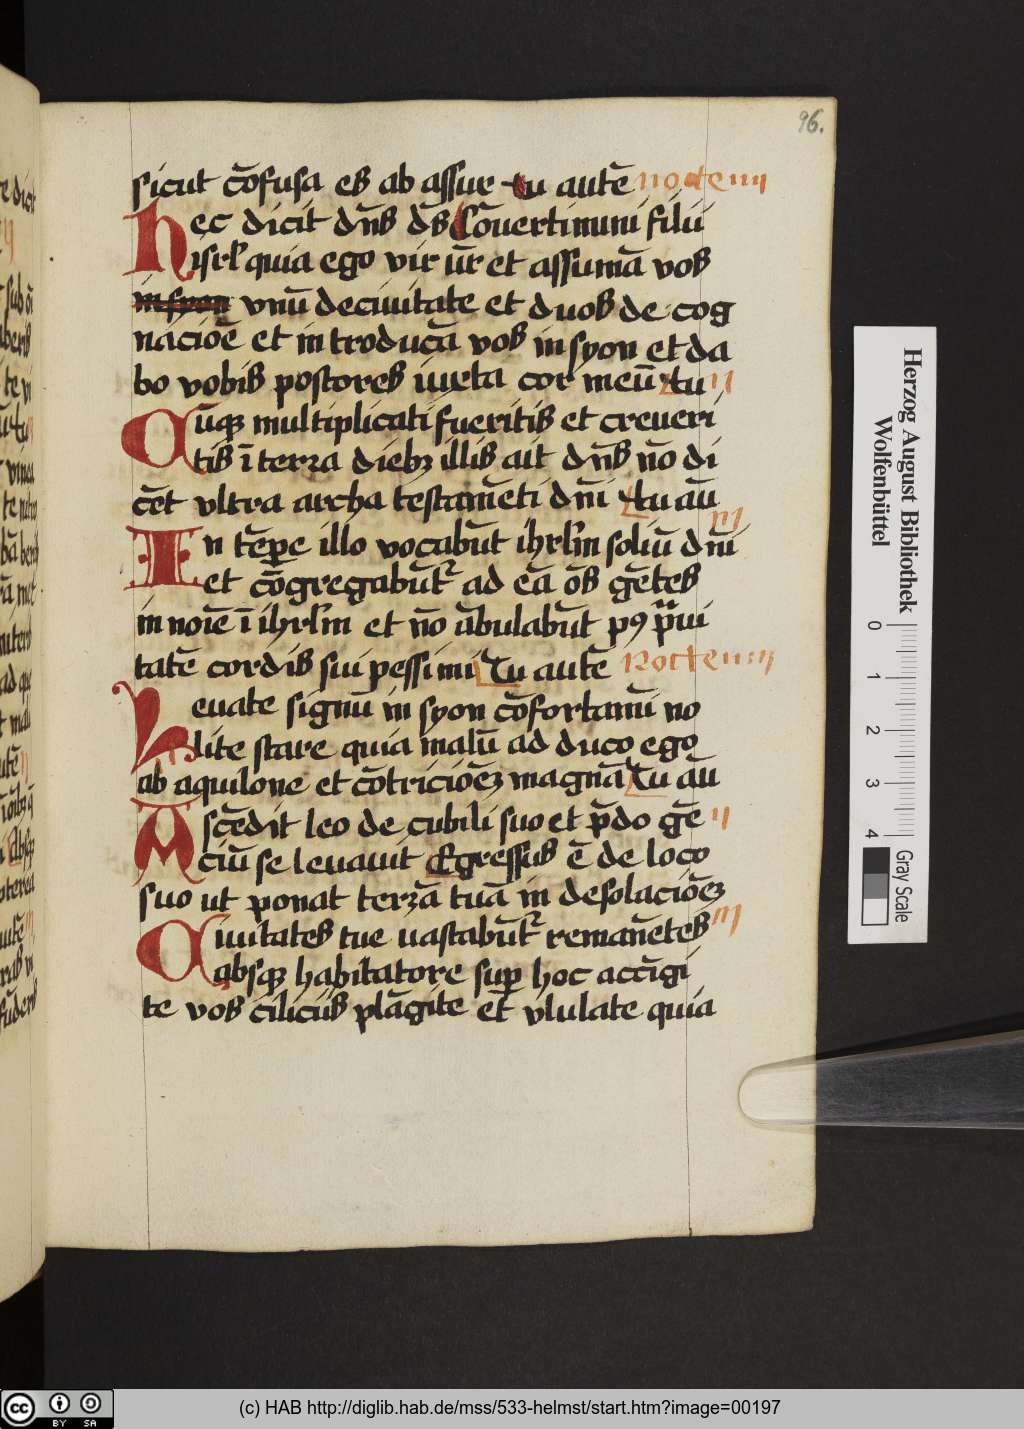 96.
sicut c̄ofusa es ab assur tu autē nocte iiij
hec dicit dn̄s ds̄ Cōuertimini filii
isrl̄ quia ego vir vr̄ et assumā vos
in syon vnū de ciuitate et duos de cog
nacioē et introducā vos in syon et da
bo vobis pastores iuxta cor meū tu ij
Cūqꝫ multiplicati fueritis et creueri
tis ī terra diebꝫ illis ait dn̄s nō di
cēt vltra archa testamēti dnī tu aū
iij
In tēpe illo vocabūt ihrl̄m soliū dnī
et cōgregabūtr ad eā ōs gētes
in noīe ī ihrl̄m et nō ābulabūt pꝯ prͣui
tatē cordis sui pessimi Tu autē Nocte iiij
Leuate signū in syon cōfortamī no
lite stare quia malū ad duco ego
ab aquilone et cōtricioēꝫ magnā Tu aū
Ascēdit leo de cubili suo et p̄do gē ij
ciū se leuauit Egressus ē de loco
suo ut ponat terrā tuā in desolacioēꝫ
Ciuitates tue uastabūtr remanētes iij
absqꝫ habitatore sup hoc accīgi
te vos ciliciis plāgite et vlulate quia
Herzog August Bibliothek
Wolfenbüttel
0 1 2 3 4
Gray Scale
cc BY SA
(c) HAB http://diglib.hab.de/mss/533-helmst/start.htm?image=00197